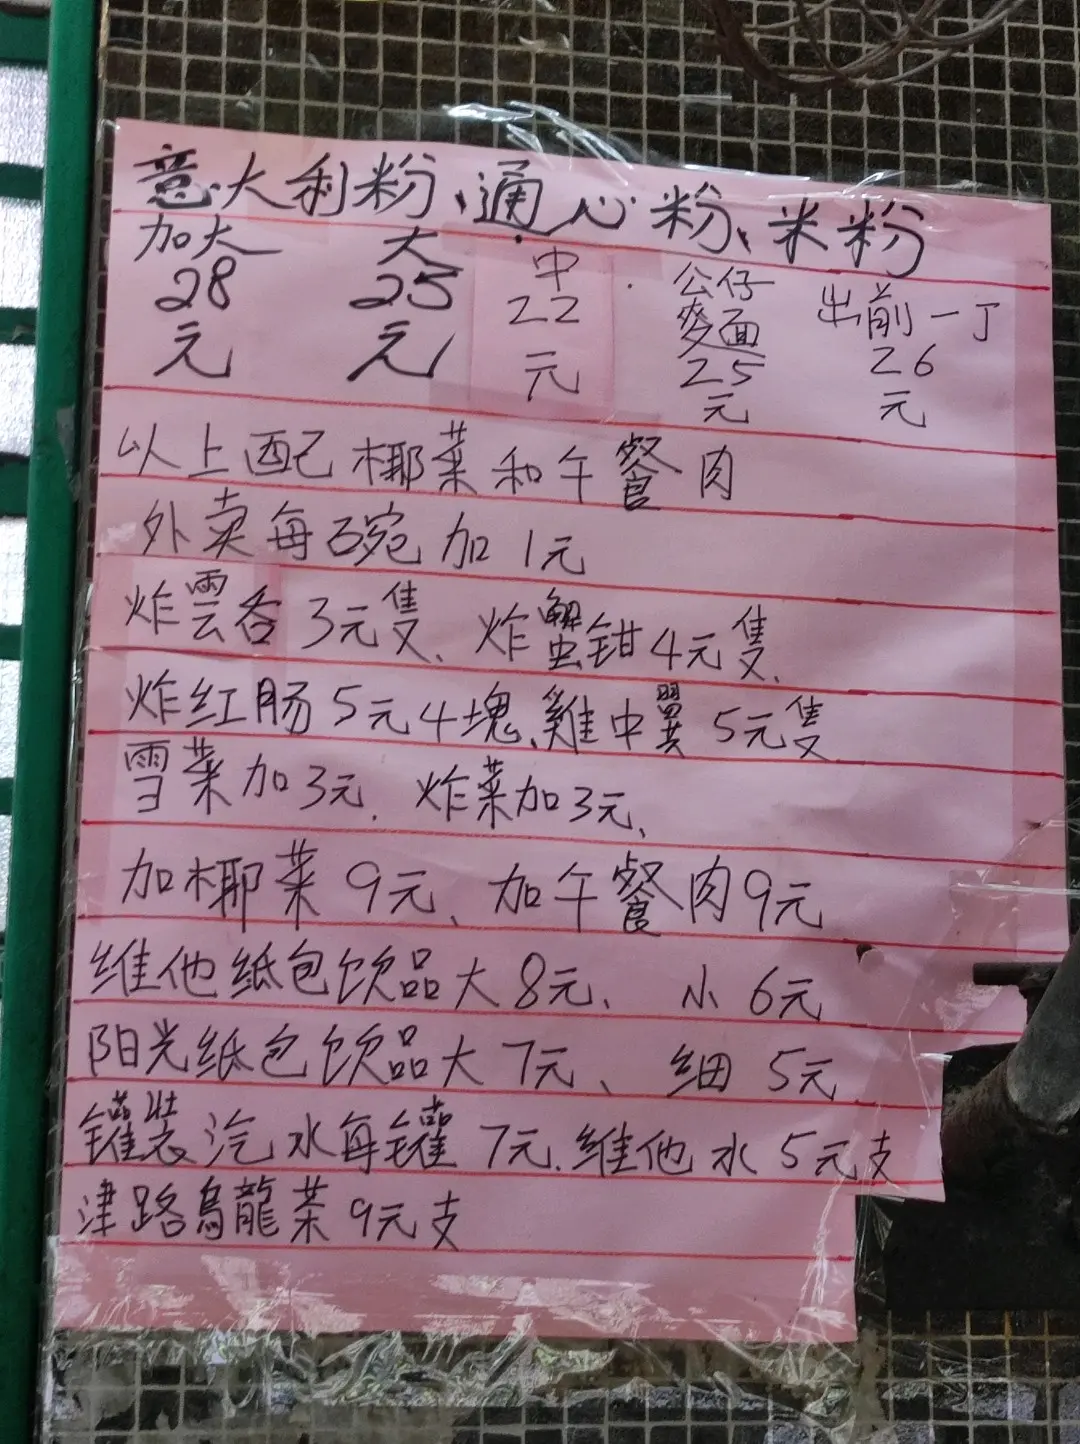 意大利粉、通心粉、米粉
加大 大 中 公仔 出前一丁
28 25 22 麥面 26
元 元 元 25 元
元
以上配椰菜和午餐肉
外卖每碗加1元
炸雲吞3元隻、炸蟹钳4元隻、
炸红肠5元4塊、雞中翼5元隻
雪菜加3元、炸菜加3元、
加椰菜9元、加午餐肉9元
维他纸包饮品大8元、小6元
阳光纸包饮品大7元、细5元
罐装汽水每罐7元、维他水5元支
津路烏龍茶9元支